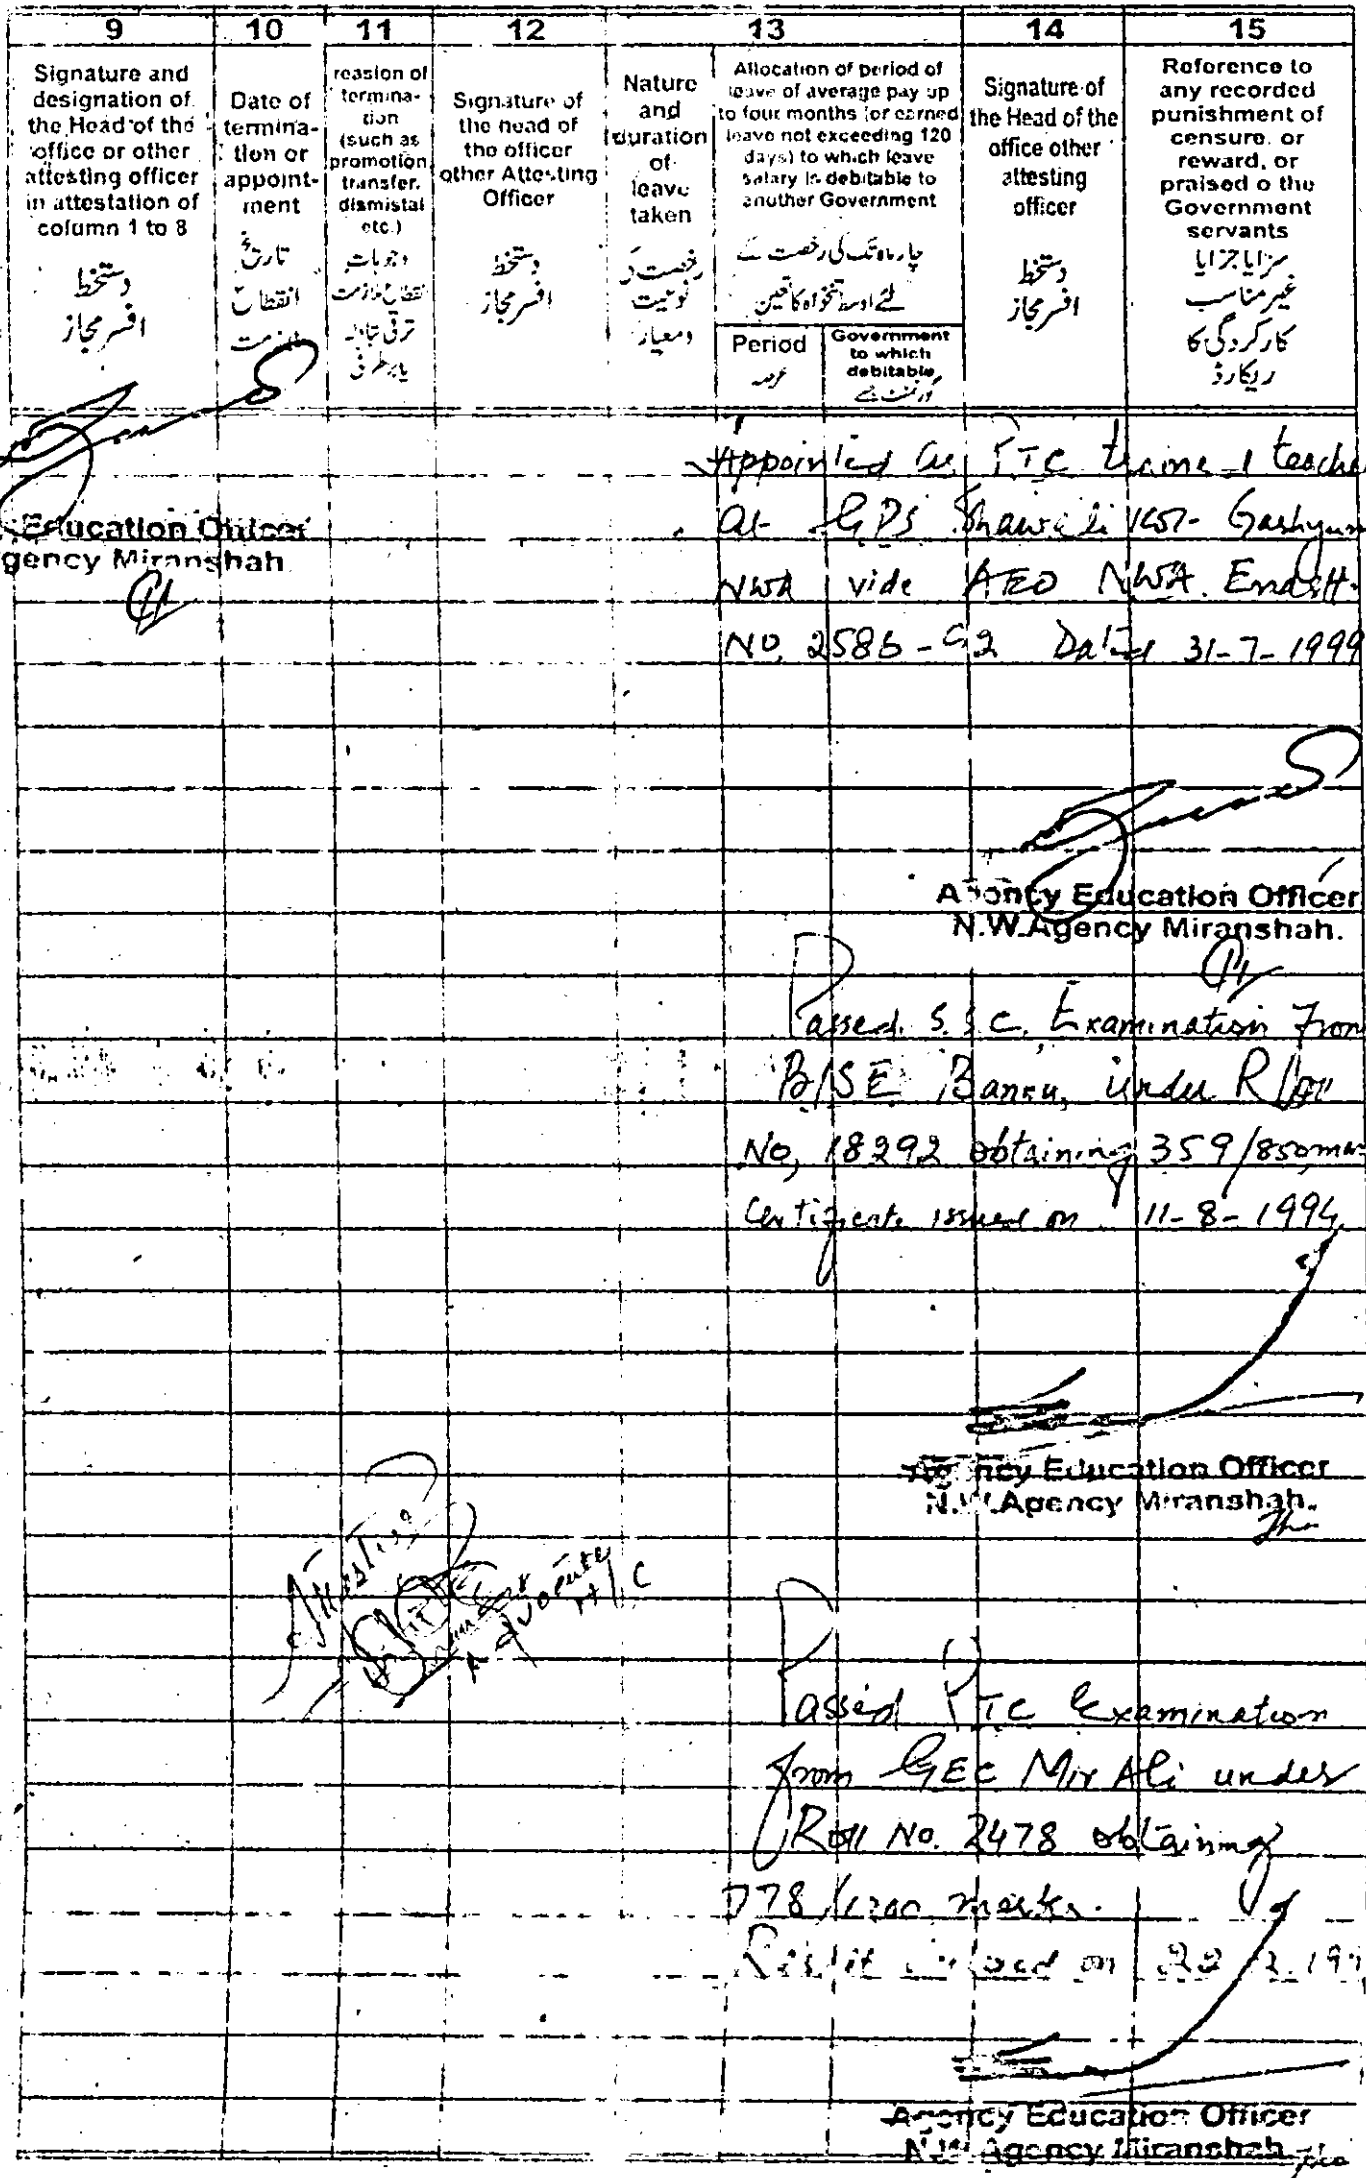 9 10 11 12 13 14 15
Signature and designation of the Head of the office or other attesting officer in attestation of column 1 to 8
دستخط
افسر مجاز
Date of termina-tion or appoint-ment
تاریخ
انقطاع
ملازمت
reasion of termina-tion (such as promotion, transfer, dismistal etc.)
وجوہات
انقطاع ملازمت
ترقی تبادلہ
یا برطرفی
Signature of the head of the officer other Attesting Officer
دستخط
افسر مجاز
Nature and duration of leave taken
رخصت کی
نوعیت
ومعیار
Allocation of period of leave of average pay up to four months (or earned leave not exceeding 120 days) to which leave salary is debitable to another Government
چار ماہ تک کی رخصت کے
لئے اوسط تنخواہ کا تعین
Period
عرصہ
Government to which debitable
گورنمنٹ ہے
Signature of the Head of the office other attesting officer
دستخط
افسر مجاز
Reference to any recorded punishment of censure, or reward, or praised o the Government servants
سزایا جزایا
غیر مناسب
کارکردگی کا
ریکارڈ
Education Officer
gency Miranshah
Appointed as PTC trained teache
at GPS Gashyum
NWA vide AEO NWA. Endstt
No. 2586-92 Dated 31-7-1999
Agency Education Officer
N.W.Agency Miranshah.
Passed S.S.C. Examination From
B/SE Bannu, under R/
No, 18292 obtaining 359/850 mar
Certificate issued on 11-8-1994
Agency Education Officer
N.W.Agency Miranshah.
Attested
Advocate
H/C
Passed PTC Examination
from GEC Mir Ali under
Roll No. 2478 obtaining
778/1200 marks.
on
Agency Education Officer
N.W Agency Miranshah